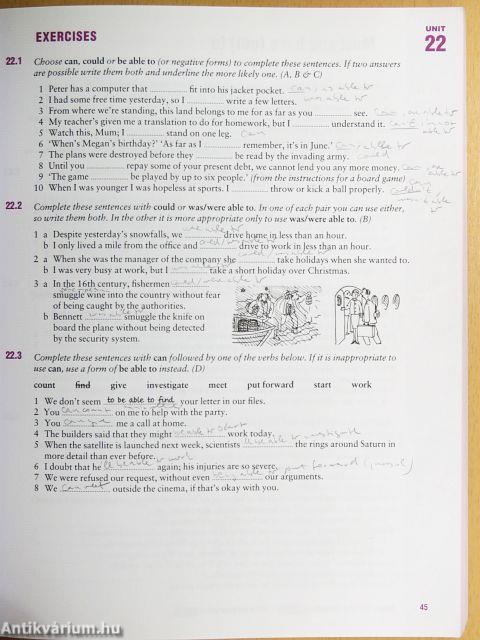 EXERCISES
UNIT
22
22.1 Choose can, could or be able to (or negative forms) to complete these sentences. If two answers
are possible write them both and underline the more likely one. (A, B & C)
1 Peter has a computer that ............... fit into his jacket pocket. can, is able to
2 I had some free time yesterday, so I ............... write a few letters. was able to
3 From where we're standing, this land belongs to me for as far as you ............... see. can
4 My teacher's given me a translation to do for homework, but I ............... understand it. can't
able to
5 Watch this, Mum; I ............... stand on one leg. can
6 'When's Megan's birthday?' 'As far as I ............... remember, it's in June.' can
7 The plans were destroyed before they ............... be read by the invading army. could
8 Until you ............... repay some of your present debt, we cannot lend you any more money. can
able to
9 'The game ............... be played by up to six people.' (from the instructions for a board game)
10 When I was younger I was hopeless at sports. I ............... throw or kick a ball properly. couldn't
22.2 Complete these sentences with could or was/were able to. In one of each pair you can use either,
so write them both. In the other it is more appropriate only to use was/were able to. (B)
1 a Despite yesterday's snowfalls, we were able to drive home in less than an hour.
b I only lived a mile from the office and ............... drive to work in less than an hour.
2 a When she was the manager of the company she ............... take holidays when she wanted to.
b I was very busy at work, but I was ............... take a short holiday over Christmas.
3 a In the 16th century, fishermen ...............
smuggle wine into the country without fear
of being caught by the authorities.
b Bennett was able to smuggle the knife on
board the plane without being detected
by the security system.
22.3 Complete these sentences with can followed by one of the verbs below. If it is inappropriate to
use can, use a form of be able to instead. (D)
count find give investigate meet put forward start work
1 We don't seem to be able to find your letter in our files.
2 You can count on me to help with the party.
3 You can give me a call at home.
4 The builders said that they might be able to start work today.
5 When the satellite is launched next week, scientists 'll be able to investigate the rings around Saturn in
more detail than ever before.
6 I doubt that he 'll be able to work again; his injuries are so severe.
7 We were refused our request, without even being able to put forward our arguments.
8 We can meet outside the cinema, if that's okay with you.
45
Antikvárium.hu